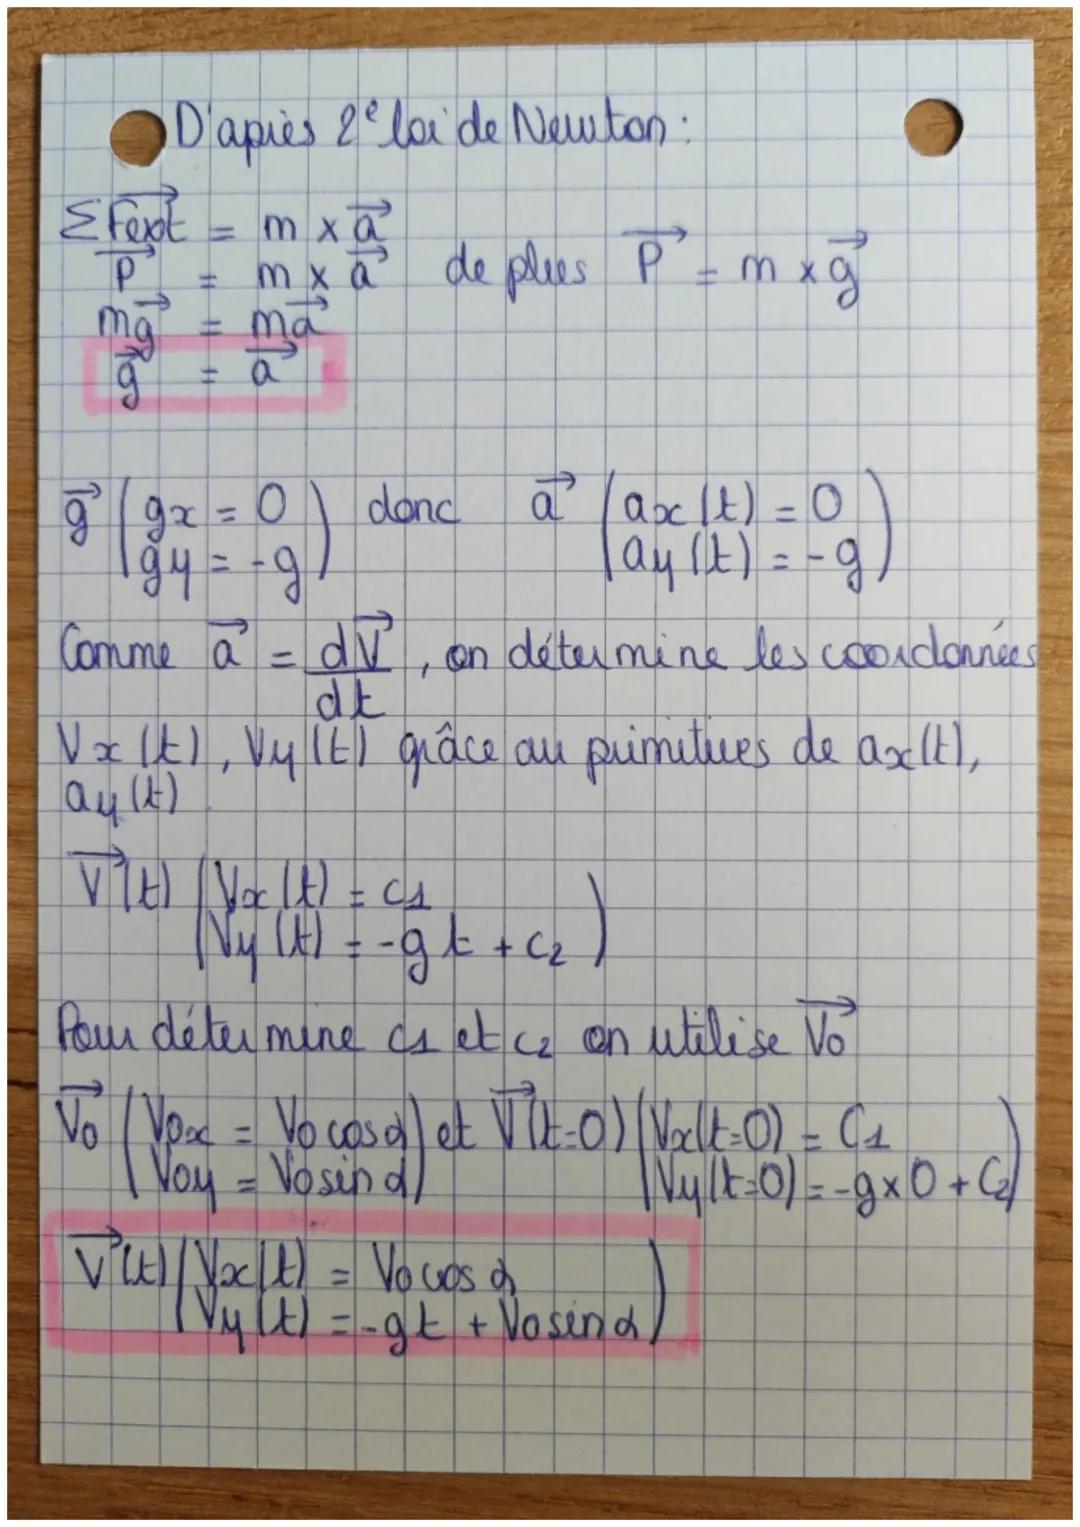 D'après 2e loi de Newton :
ΣFext→ = m × a→
P→ = m × a→ de plus P→ = m × g→
mg→ = ma→
g→ = a→
g→ (gx = 0 donc a→ (ax(t) = 0
gy = -g) ay(t) = -g)
Comme a→ = dV→/dt, on détermine les coordonnées
Vx(t), Vy(t) grâce au primitives de ax(t),
ay(t)
V→(t) (Vx(t) = C1
Vy(t) = -gt + C2)
Pour détermine C1 et C2 on utilise V0→
V0→ (V0x = V0 cos α et V→(t=0) (Vx(t=0) = C1
V0y = V0 sin α) Vy(t=0) = -g×0 + C2)
V→(t) (Vx(t) = V0 cos α
Vy(t) = -gt + V0 sin α)